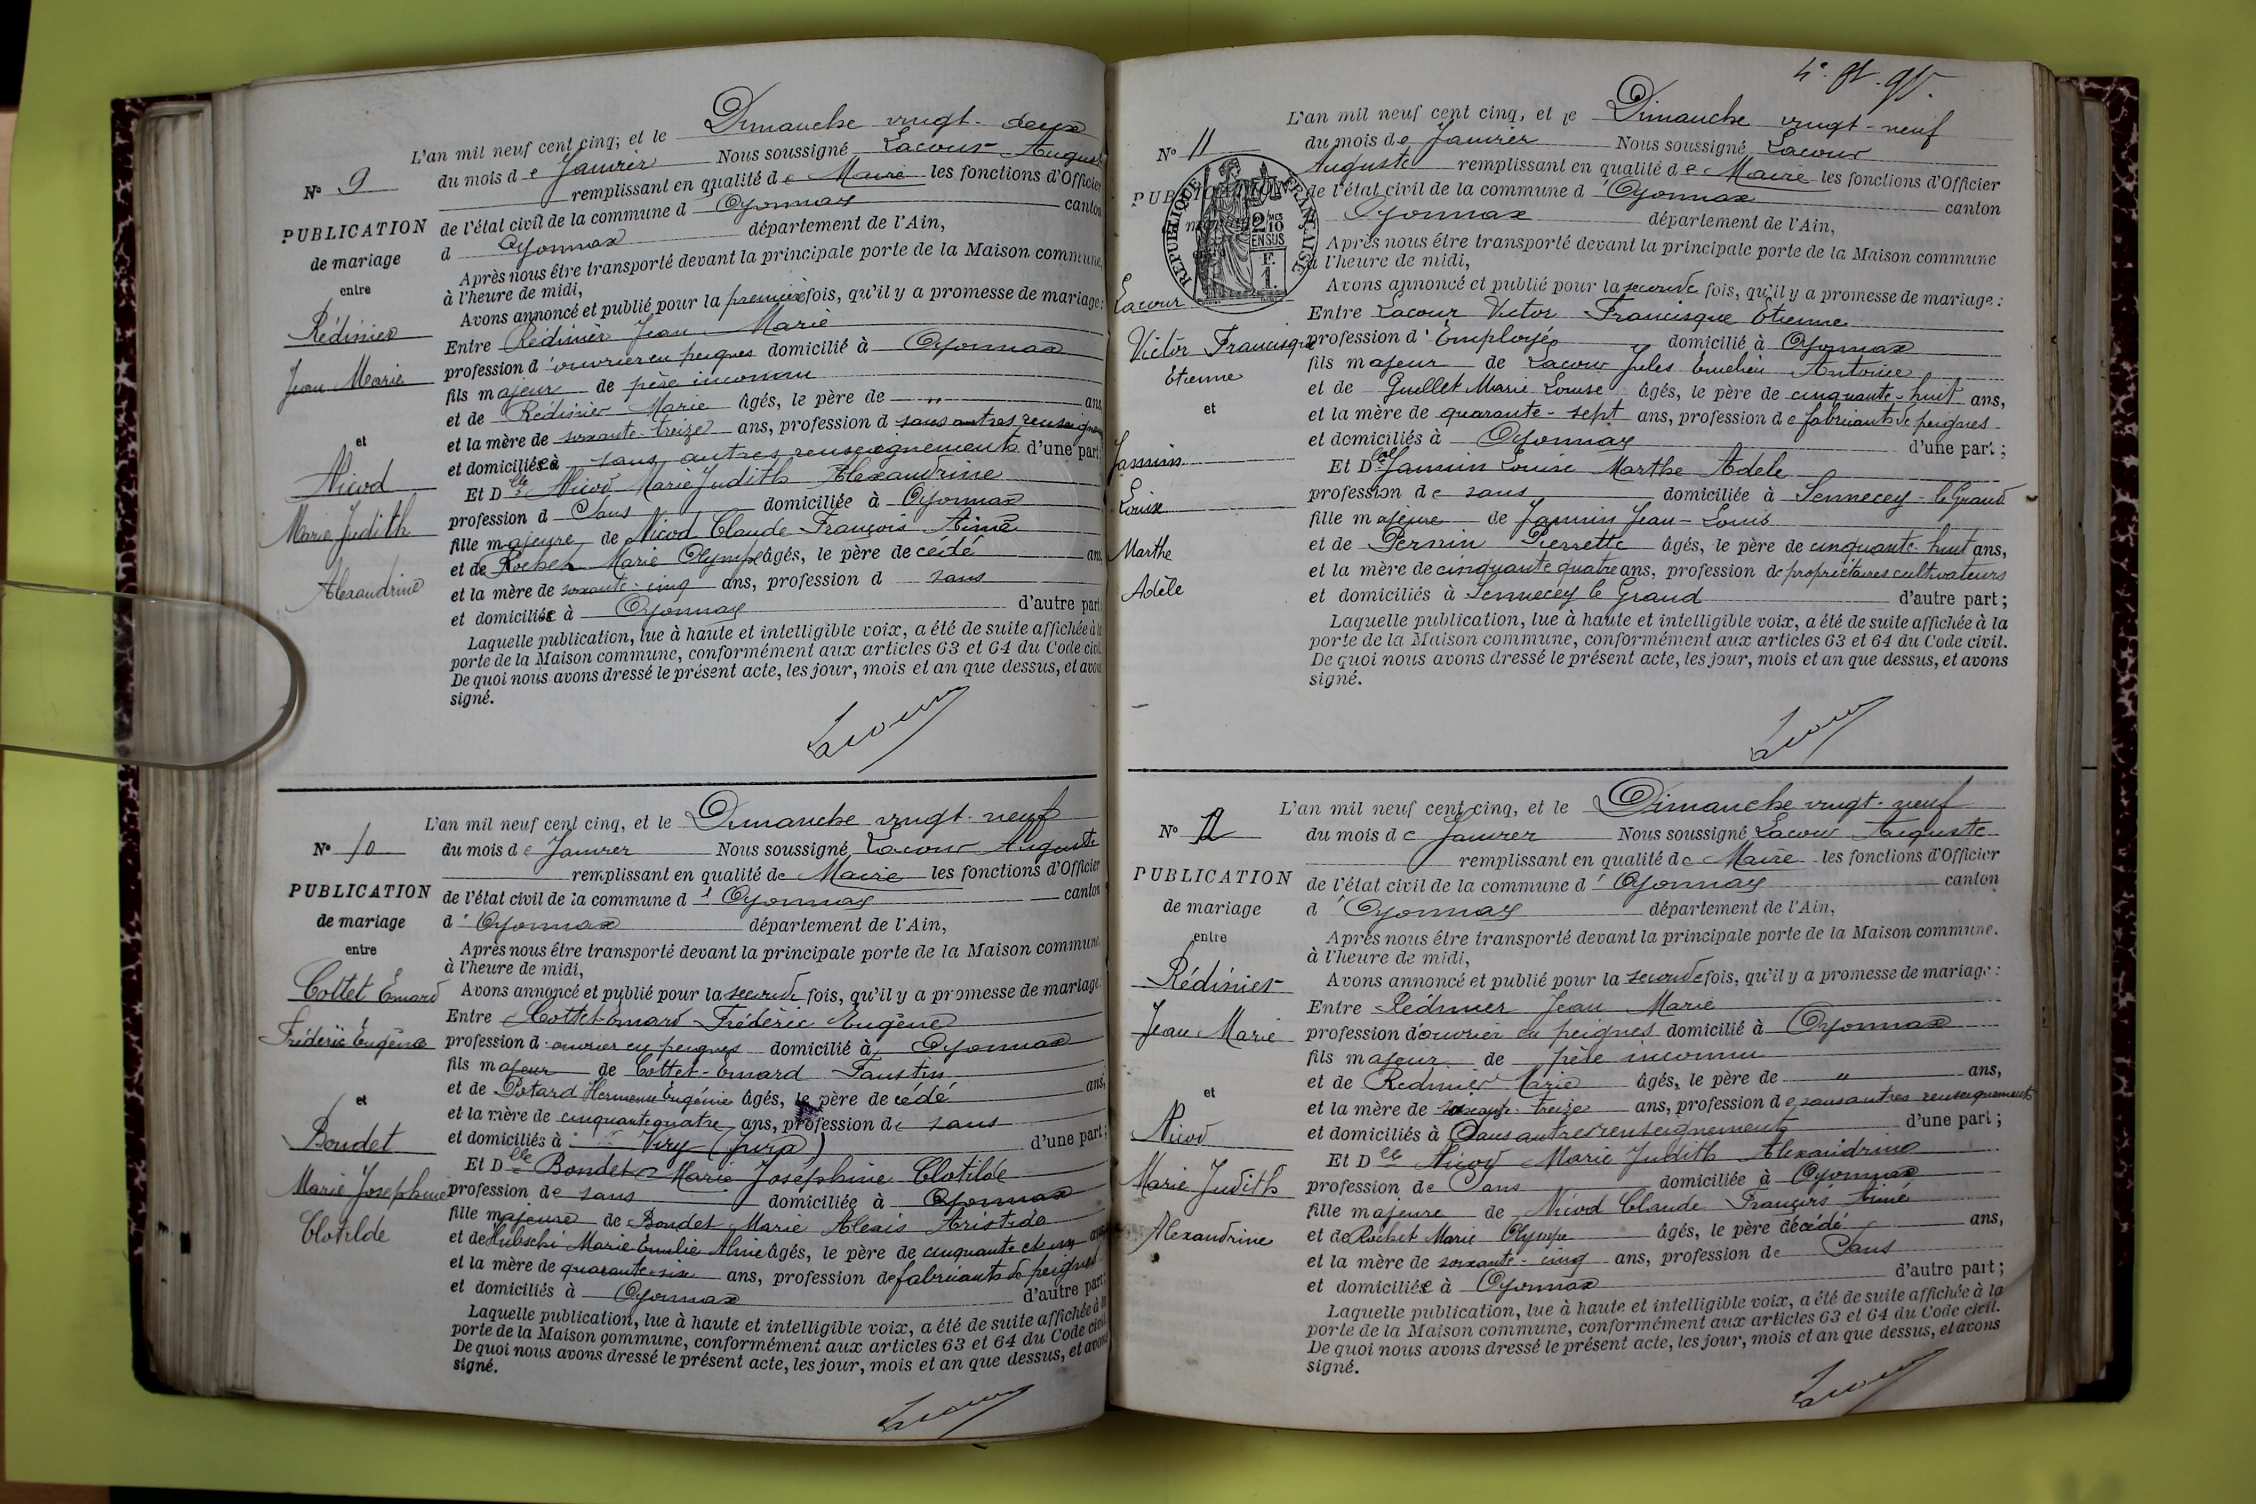 L'an mil neuf cent cinq; et le Dimanche vingt-deux
du mois de Janvier Nous soussigné Lacour Auguste
N° 9
remplissant en qualité de Maire les fonctions d'Officier
PUBLICATION
de l'état civil de la commune d'Oyonnax canton
de mariage
d Oyonnax département de l'Ain,
entre
Après nous être transporté devant la principale porte de la Maison commune,
à l'heure de midi,
Avons annoncé et publié pour la première fois, qu'il y a promesse de mariage:
Rédinier
Entre Rédinier Jean Marie
profession d'ouvrier en peignes domicilié à Oyonnax
Jean Marie
fils majeur de père inconnu
et de Rédinier Marie âgés, le père de " ans,
et
et la mère de soixante-treize ans, profession d sans autres renseignem
et domiciliés à sans autres renseignements d'une part
Nicod
Et Dlle Nicod Marie Judith Alexandrine
profession d Sans domiciliée à Oyonnax
Marie Judith
fille majeure de Nicod Claude François Aimé
et de Rochet Marie Olympe âgés, le père décédé ans
Alexandrine
et la mère de soixante-cinq ans, profession d sans
et domiciliée à Oyonnax d'autre part
Laquelle publication, lue à haute et intelligible voix, a été de suite affichée à la
porte de la Maison commune, conformément aux articles 63 et 64 du Code civil.
De quoi nous avons dressé le présent acte, les jour, mois et an que dessus, et avons
signé.
Lacour
L'an mil neuf cent cinq, et le Dimanche vingt-neuf
N° 10
du mois de Janvier Nous soussigné Lacour Auguste
remplissant en qualité de Maire les fonctions d'Officier
PUBLICATION
de l'état civil de la commune d'Oyonnax canton
de mariage
d'Oyonnax département de l'Ain,
entre
Après nous être transporté devant la principale porte de la Maison commune
à l'heure de midi,
Cottet Emard
Avons annoncé et publié pour la seconde fois, qu'il y a promesse de mariage
Entre Cottet-Emard Frédéric Eugène
Frédéric Eugène
profession d'ouvrier en peignes domicilié à Oyonnax
fils majeur de Cottet-Emard Faustin
et de Potard Hermence Eugénie âgés, le père décédé ans,
et
et la mère de cinquante quatre ans, profession de sans
Bondet
et domiciliés à Viry (Jura) d'une part;
Et Dlle Bondet Marie Joséphine Clotilde
Marie Josephine
profession de sans domiciliée à Oyonnax
Clotilde
fille majeure de Bondet Marie Alexis Aristide
et de Hubschi Marie Emilie Aline âgés, le père de cinquante et un ans
et la mère de quarante-six ans, profession de fabricants de peignes
et domiciliés à Oyonnax d'autre part
Laquelle publication, lue à haute et intelligible voix, a été de suite affichée à la
porte de la Maison commune, conformément aux articles 63 et 64 du Code civil.
De quoi nous avons dressé le présent acte, les jour, mois et an que dessus, et avons
signé.
Lacour
L'an mil neuf cent cinq, et le Dimanche vingt-neuf
N° 11
du mois de Janvier Nous soussigné Lacour
Auguste remplissant en qualité de Maire les fonctions d'Officier
de l'état civil de la commune d'Oyonnax canton
Oyonnax département de l'Ain,
RÉPUBLIQUE FRANÇAISE
2/10 MES
EN SUS
F.
1.
Après nous être transporté devant la principale porte de la Maison commune
à l'heure de midi,
Avons annoncé et publié pour la seconde fois, qu'il y a promesse de mariage:
Lacour
Entre Lacour Victor Francisque Etienne
Victor Francisque
profession d'Employé domicilié à Oyonnax
Etienne
fils majeur de Lacour Jules Emelien Antoine
et de Guillet Marie Louise âgés, le père de cinquante-huit ans,
et
et la mère de quarante-sept ans, profession de fabricants de peignes
et domiciliés à Oyonnax d'une part;
Jannin
Et Dlle Jannin Louise Marthe Adèle
Louise
profession de sans domiciliée à Sennecey-le Grand
fille majeure de Jannin Jean-Louis
Marthe
et de Perrin Pierrette âgés, le père de cinquante-huit ans,
et la mère de cinquante quatre ans, profession de propriétaires cultivateurs
Adèle
et domiciliés à Sennecey le Grand d'autre part;
Laquelle publication, lue à haute et intelligible voix, a été de suite affichée à la
porte de la Maison commune, conformément aux articles 63 et 64 du Code civil.
De quoi nous avons dressé le présent acte, les jour, mois et an que dessus, et avons
signé.
Lacour
L'an mil neuf cent cinq, et le Dimanche vingt-neuf
N° 12
du mois de Janvier Nous soussigné Lacour Auguste
remplissant en qualité de Maire les fonctions d'Officier
PUBLICATION
de l'état civil de la commune d'Oyonnax canton
de mariage
d'Oyonnax département de l'Ain,
entre
Après nous être transporté devant la principale porte de la Maison commune.
à l'heure de midi,
Rédinier
Avons annoncé et publié pour la seconde fois, qu'il y a promesse de mariage:
Entre Rédinier Jean Marie
Jean Marie
profession d'ouvrier en peignes domicilié à Oyonnax
fils majeur de père inconnu
et de Redinier Marie âgés, le père de " ans,
et
et la mère de soixante-treize ans, profession de sans autres renseignements
Nicod
et domiciliés à Sans autres renseignements d'une part;
Et Dlle Nicod Marie Judith Alexandrine
Marie Judith
profession de Sans domiciliée à Oyonnax
fille majeure de Nicod Claude François Aimé
Alexandrine
et de Rochet Marie Olympe âgés, le père décédé ans,
et la mère de soixante-cinq ans, profession de Sans
et domiciliée à Oyonnax d'autre part;
Laquelle publication, lue à haute et intelligible voix, a été de suite affichée à la
porte de la Maison commune, conformément aux articles 63 et 64 du Code civil.
De quoi nous avons dressé le présent acte, les jour, mois et an que dessus, et avons
signé.
Lacour